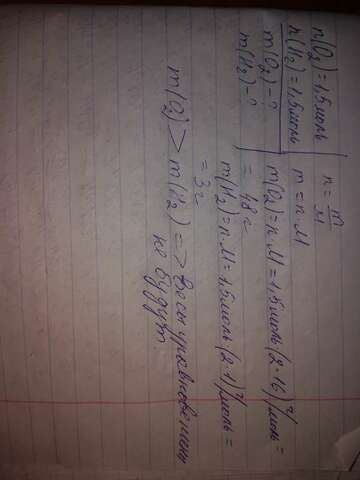 n(O₂)=1,5моль
n(H₂)=1,5моль
m(O₂)-?
m(H₂)-?
n = m/M
m = n·M
m(O₂)=n·M=1,5моль·(2·16)г/моль=
= 48г
m(H₂)=n·M=1,5моль·(2·1)г/моль=
= 3г
m(O₂) > m(H₂) => весы уравновешены
не будут.